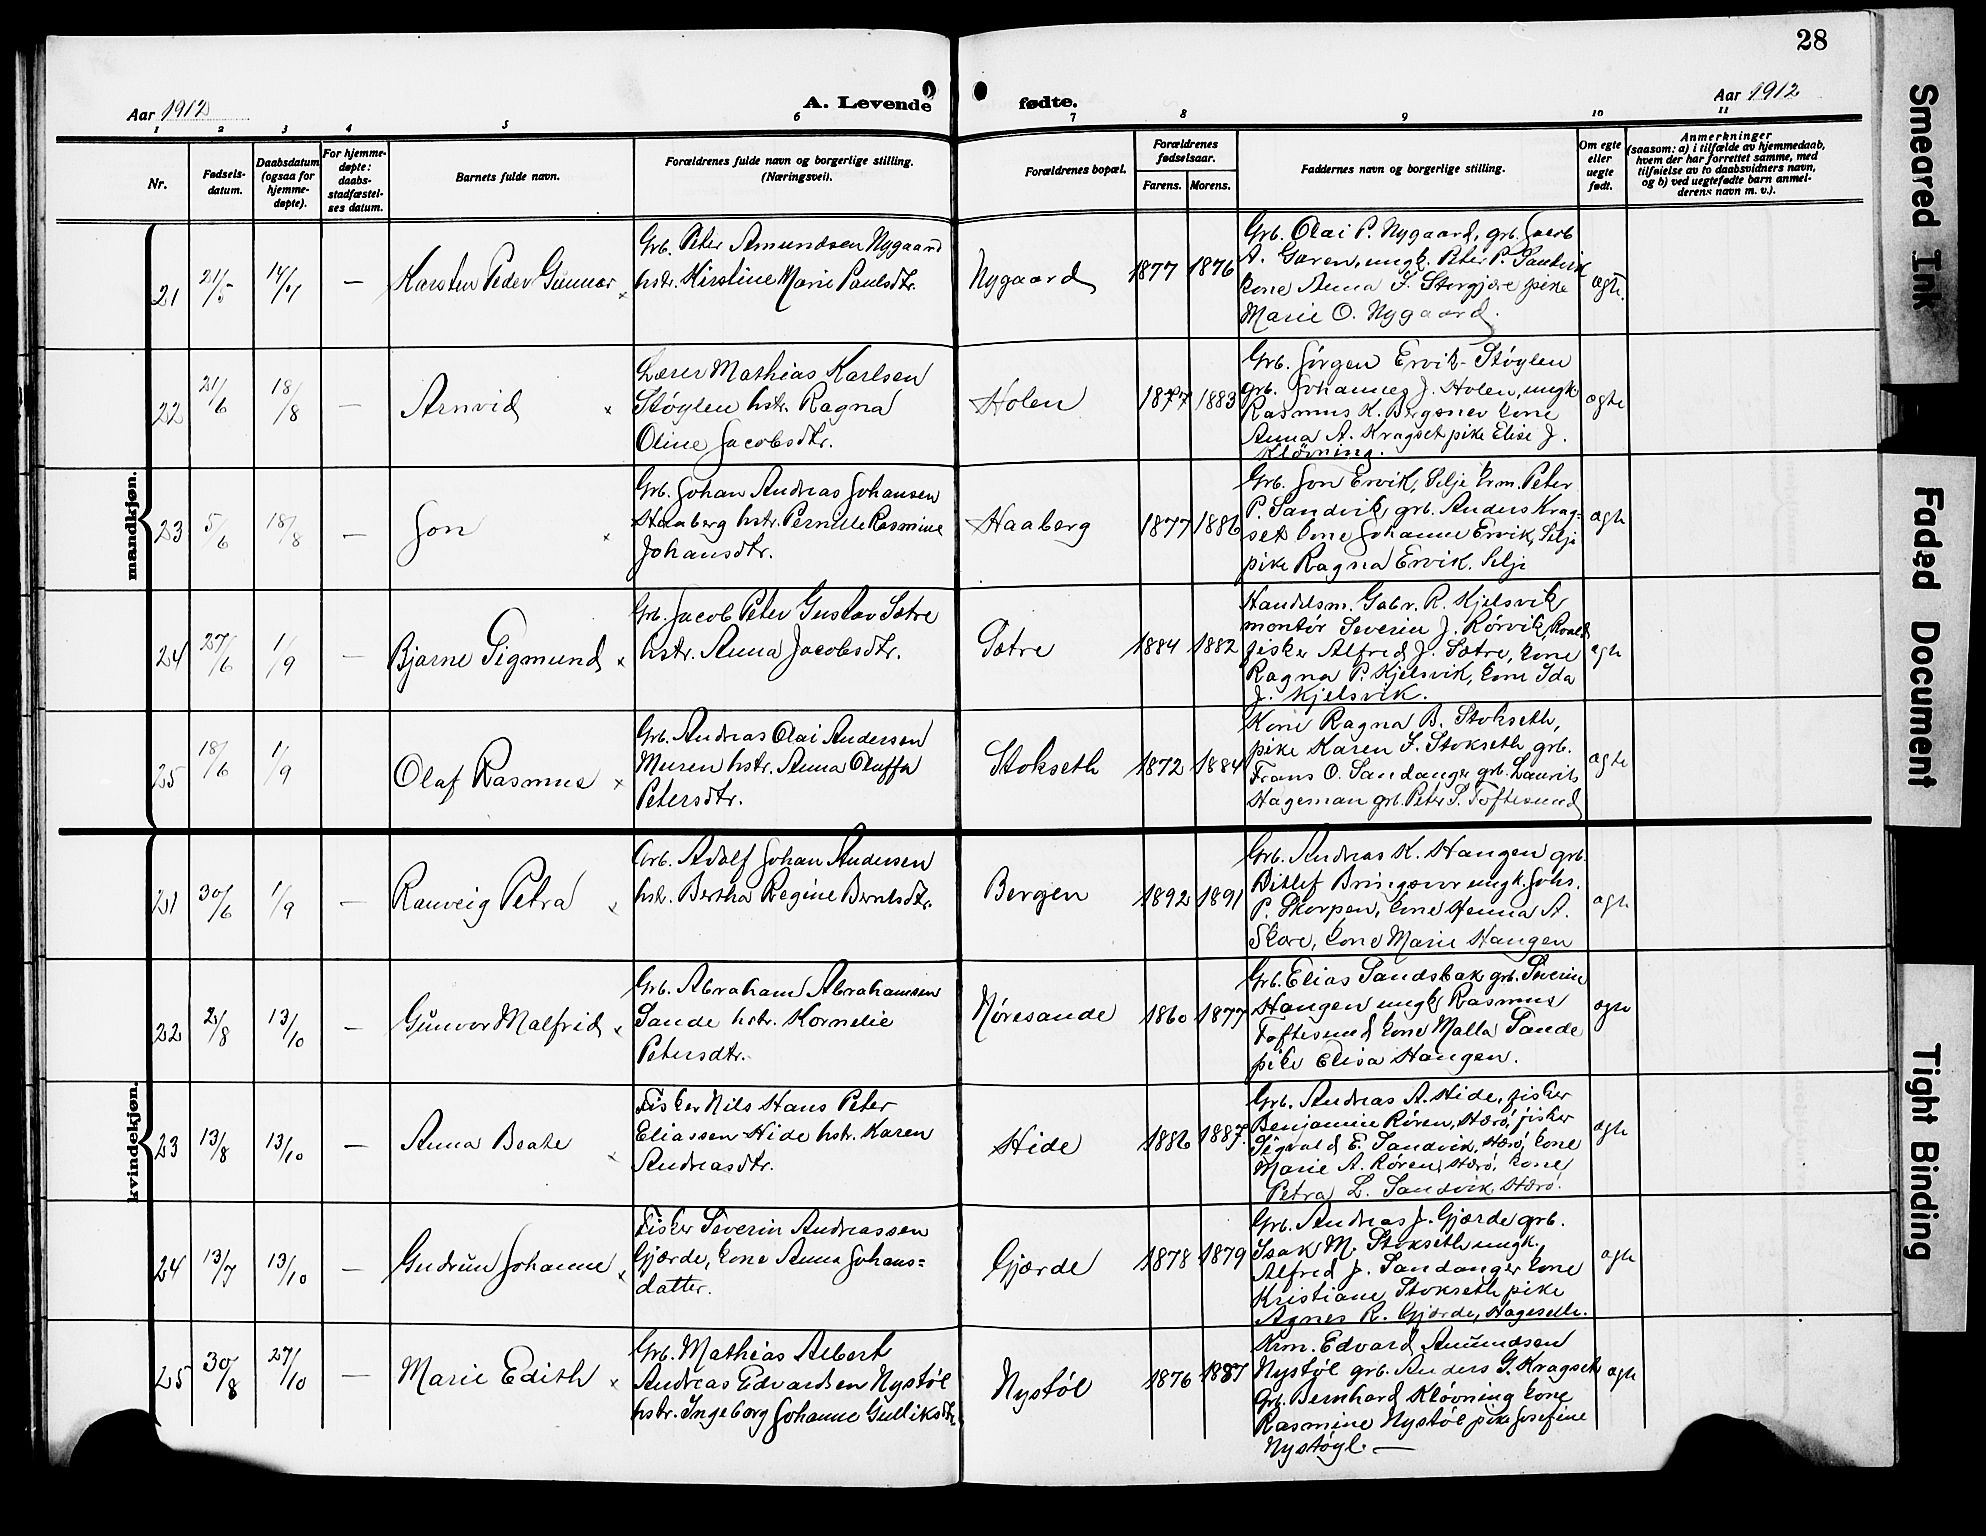 28
Aar 1912
A. Levende fødte.
Aar 1912
1 2 3 4 5 6 7 8 9 10 11
Nr.
Fødsels-
datum.
Daabsdatum
(ogsaa for
hjemme-
døpte).
For hjemme-
døpte:
daabs-
stadfæstel-
ses datum.
Barnets fulde navn.
Forældrenes fulde navn og borgerlige stilling.
(Næringsvei).
Forældrenes bopæl.
Forældrenes
fødselsaar.
Farens. Morens.
Faddernes navn og borgerlige stilling.
Om egte
eller
uegte
født.
Anmerkninger
(saasom: a) i tilfælde av hjemmedaab,
hvem der har forrettet samme, med
tilføielse av to daabsvidners navn,
og b) ved uegtefødte barn anmel-
derens navn m. v.).
mandkjøn.
21 21/5 — Karsten Peder Gunnar ×
Grb. Peter Amundsen Nygaard
hstr. Kirstine Marie Paulsdtr.
Nygaard 1877 1876
Grb. Olai P. Nygaard, grb. Jacob
A. Garen, ungk. Peter P. Sandvik
kone Anna J. Storgjøre pike
Marie O. Nygaard.
ægte.
22 21/6 18/8 — Arnvid ×
Lærer Mathias Karlsen
Støylen hstr. Ragna
Oline Jacobsdtr.
Holen 1877 1883
Grb. Jørgen Ervik-Støylen
grb. Johannes J. Holen, ungk.
Rasmus K. Bergsnev kone
Anna A. Kragset pike Elise J.
Kløvning.
ægte
23 5/6 18/8 — Jon ×
Grb. Johan Andreas Johansen
Haaberg hstr. Pernille Rasmine
Johansdtr.
Haaberg 1877 1886
Grb. Jon Ervik, Selje krm. Peter
P. Sandvik, grb. Anders Krag-
set kone Johanne Ervik, Selje
pike Ragna Ervik. Selje
ægte
24 27/6 1/9 — Bjarne Sigmund ×
Grb. Jacob Peter Gustav Sætre
hstr. Anna Jacobsdtr.
Sætre 1884 1882
Handelsm. Gabr. R. Kjelsvik
montør Severin J. Rørvik, Roald
fisker Alfred J. Sætre, kone
Ragna P. Kjelsvik, kone Ida
J. Kjelsvik.
ægte
25 18/6 1/9 Olaf Rasmus ×
Grb. Andreas Olai Andersen
Muren hstr. Anna Oluffa
Petersdtr.
Stokseth 1872 1884
Kone Ragna B. Stokseth,
pike Karen J. Stokseth grb.
Frans O. Sandanger grb. Laurits
Hageman grb. Peter S. Toftesund
ægte
kvindekjøn.
21 30/6 1/9 — Rauveig Petra ×
Arb. Adolf Johan Andersen
hstr. Bertha Regine Berntsdtr.
Bergen 1892 1891
Grb. Andreas K. Haugen grb.
Ditlef Bringsvor ungk. Johs.
P. Skorpen, kone Henna A.
Skare, kone Marie Haugen
ægte
22 2/8 13/10 — Gunvor Malfrid ×
Grb. Abraham Abrahamsen
Sande hstr. Kornelie
Petersdtr.
Møresande 1860 1877
Grb. Elias Sandsbak grb. Severin
Haugen ungk. Rasmus
Toftesund kone Malla Sande
pike Elisa Haugen.
ægte
23 13/8 13/10 — Anna Beate
Fisker Nils Hans Peter
Eliassen Hide hstr. Karen
Andreasdtr.
Hide 1886 1887.
Grb. Andreas A. Hide, fisker
Benjamin Røren, Hærø, fisker
Sigvald E. Sandvik, Hærø, kone
Marie A. Røren, Hærø, kone
Petra L. Sandvik, Hærø.
ægte
24 13/7 13/10 — Gudrun Johanne ×
Fisker Severin Andreassen
Gjærde, kone Anna Johans=
datter.
Gjærde 1878 1879
Grb. Andreas J. Gjærde grb.
Isak M. Stokseth ungk.
Alfred J. Sandanger kone
Kristiane Stokseth pike
Agnes R. Gjærde, Hageseth.
ægte
25 30/8 27/10 — Marie Edith ×
Grb. Mathias Albert
Andreas Edvardsen Nystøl
hstr. Ingeborg Johanne Gulliksdtr.
Nystøl 1876 1887
Krm. Edvard Amundsen
Nystøl grb. Anders G. Kragset
Grb. Bernhard Kløvning kone
Rasmine Nystøl pike Josefine
Nystøyl. —
ægte
Smeared Ink
Faded Document
Tight Binding